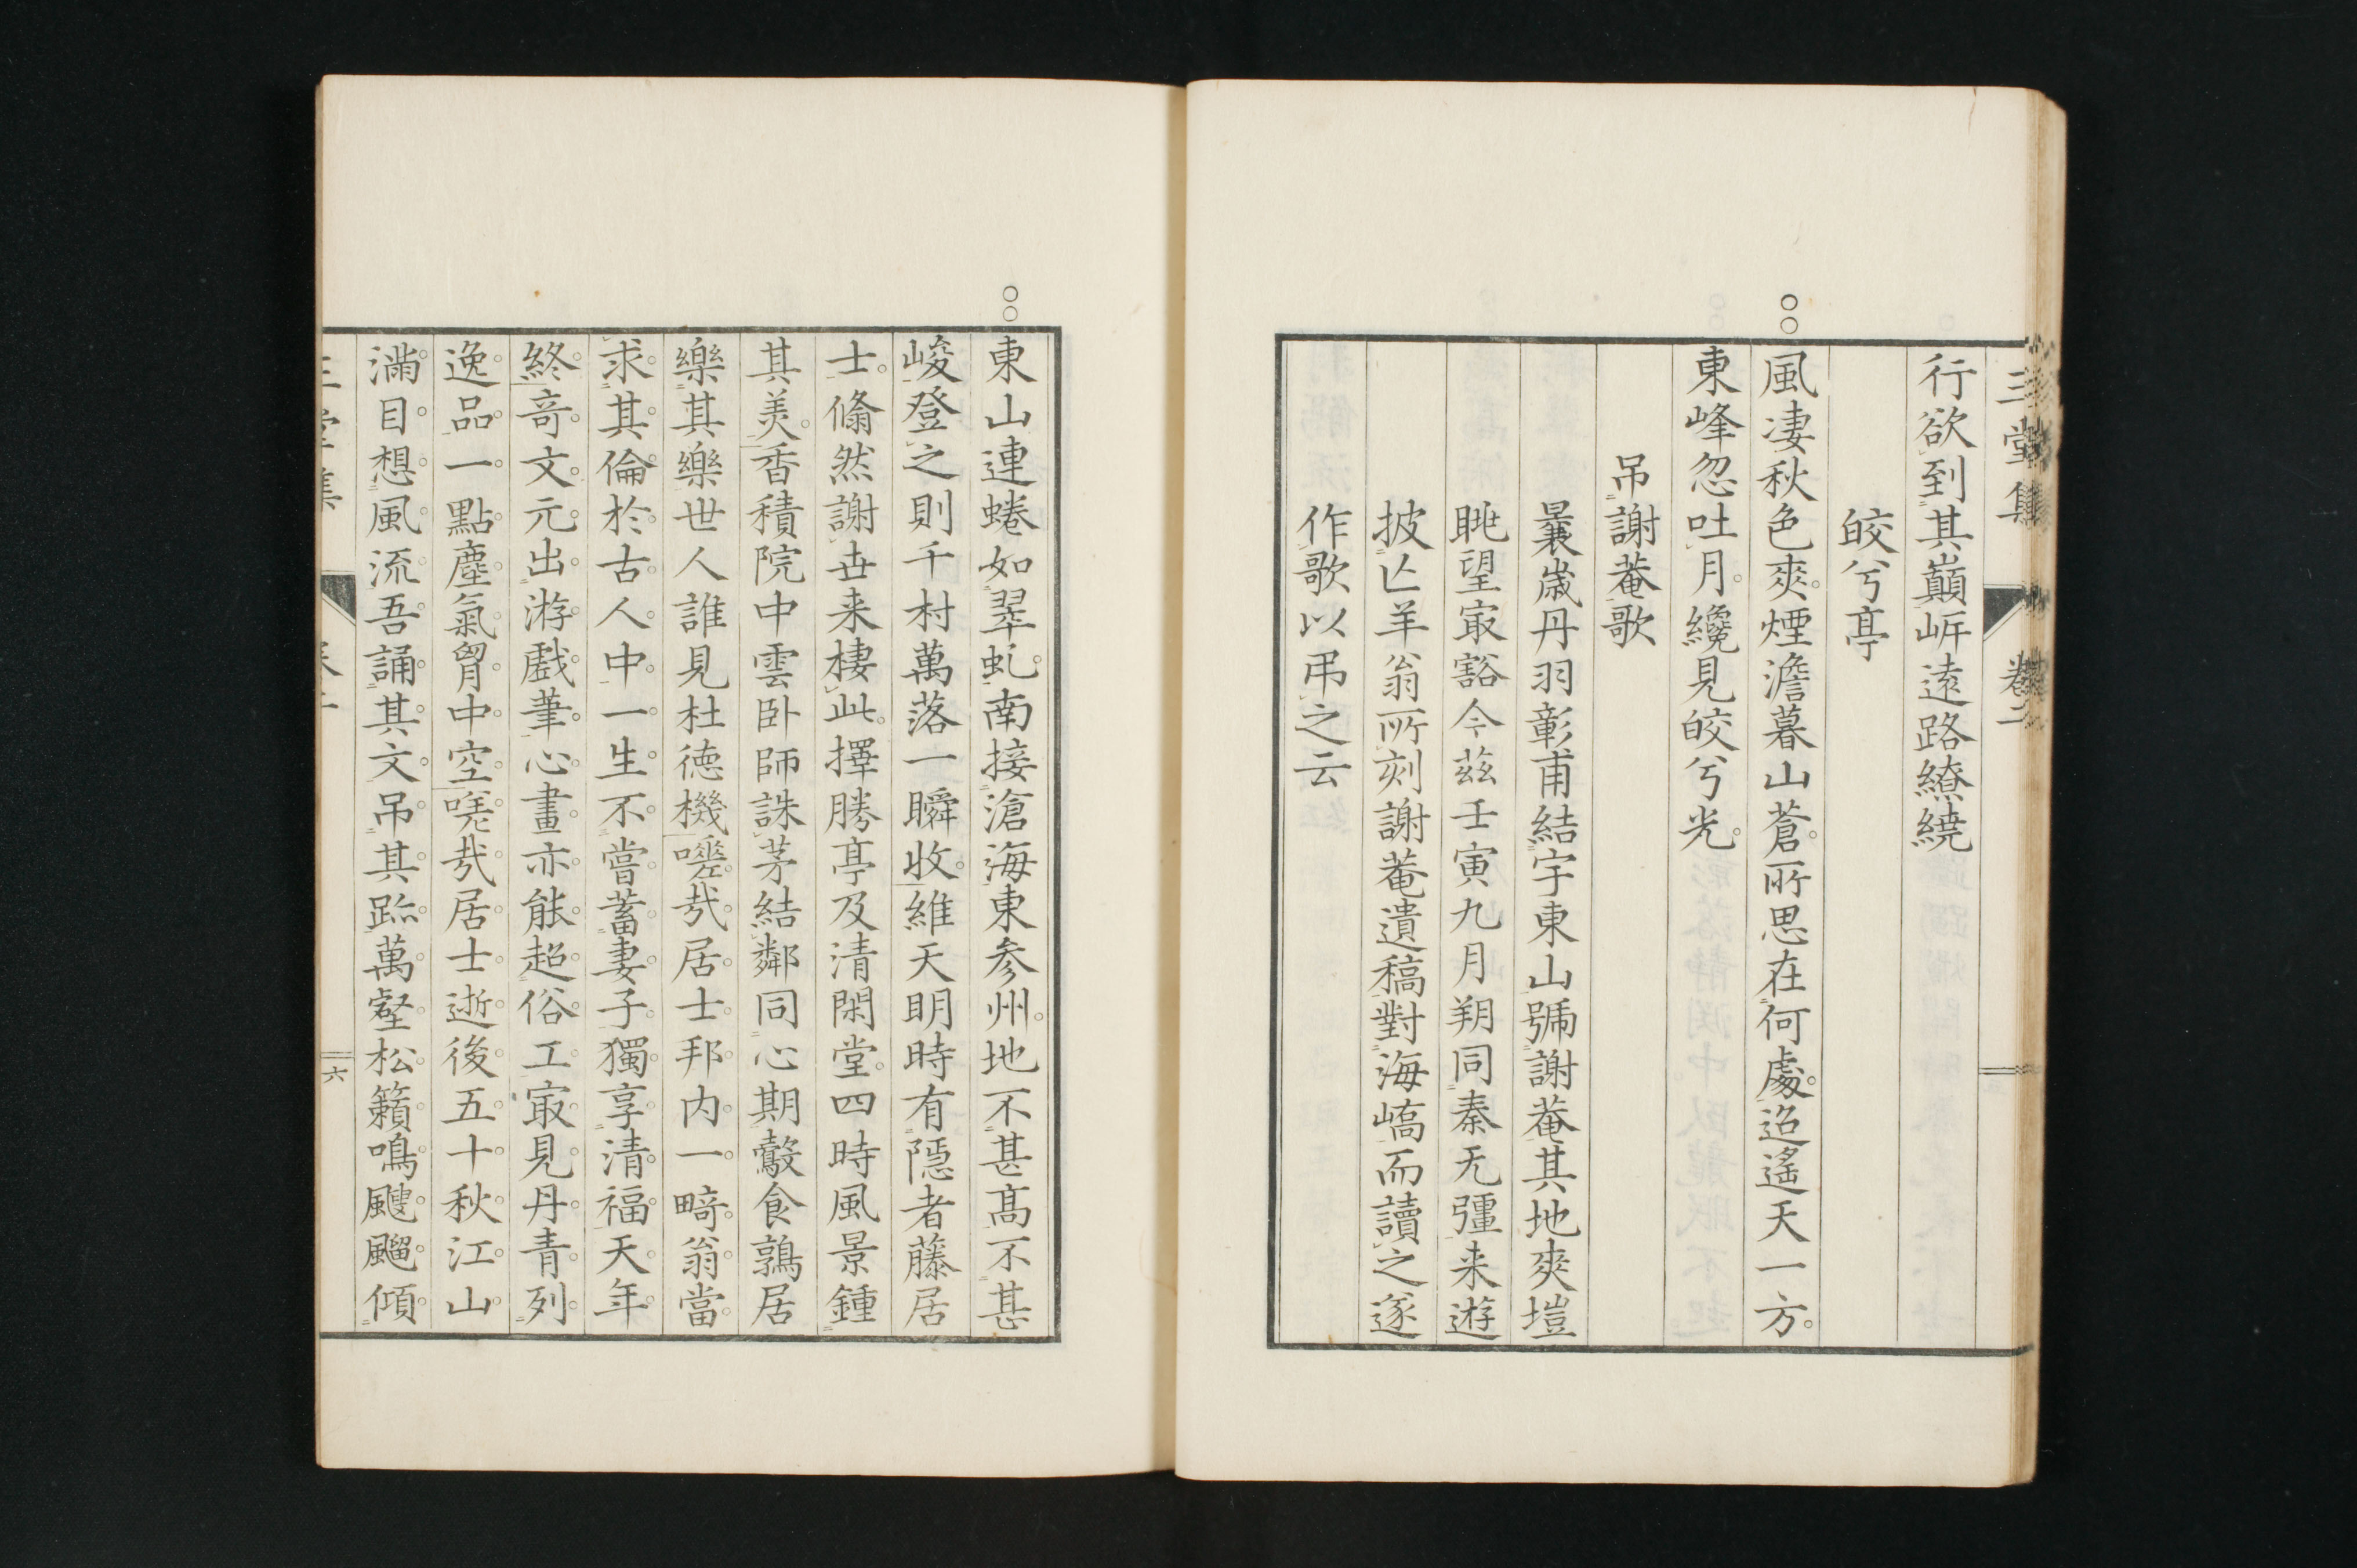 三堂集 卷二
行欲到其巔岓遠路繚繞
皎兮亭
風凄秋色爽煙澹暮山蒼所思在何處迢遙天一方
東峰忽吐月纔見皎兮光
吊謝菴歌
曩歲丹羽彰甫結宇東山號謝菴其地爽塏
眺望㝡豁今玆壬寅九月朔同秦无彊来遊
披亾羊翁所刻謝菴遺稿對海嶠而讀之遂
作歌以弔之云
東山連蜷如翠虬南接滄海東参州地不甚髙不甚
峻登之則千村萬落一瞬收維天明時有隱者藤居
士翛然謝世来棲此擇勝亭及清閑堂四時風景鍾
其美香積院中雲卧師誅茅結鄰同心期鷇食鶉居
樂其樂世人誰見杜德機嗟哉居士邦内一畸翁當
求其倫於古人中一生不嘗蓄妻子獨享清福天年
終竒文元出游戲筆心畫亦能超俗工㝡見丹青列
逸品一點塵氣胷中空嗟哉居士逝後五十秋江山
滿目想風流吾誦其文吊其跡萬壑松籟鳴颼飀傾
六